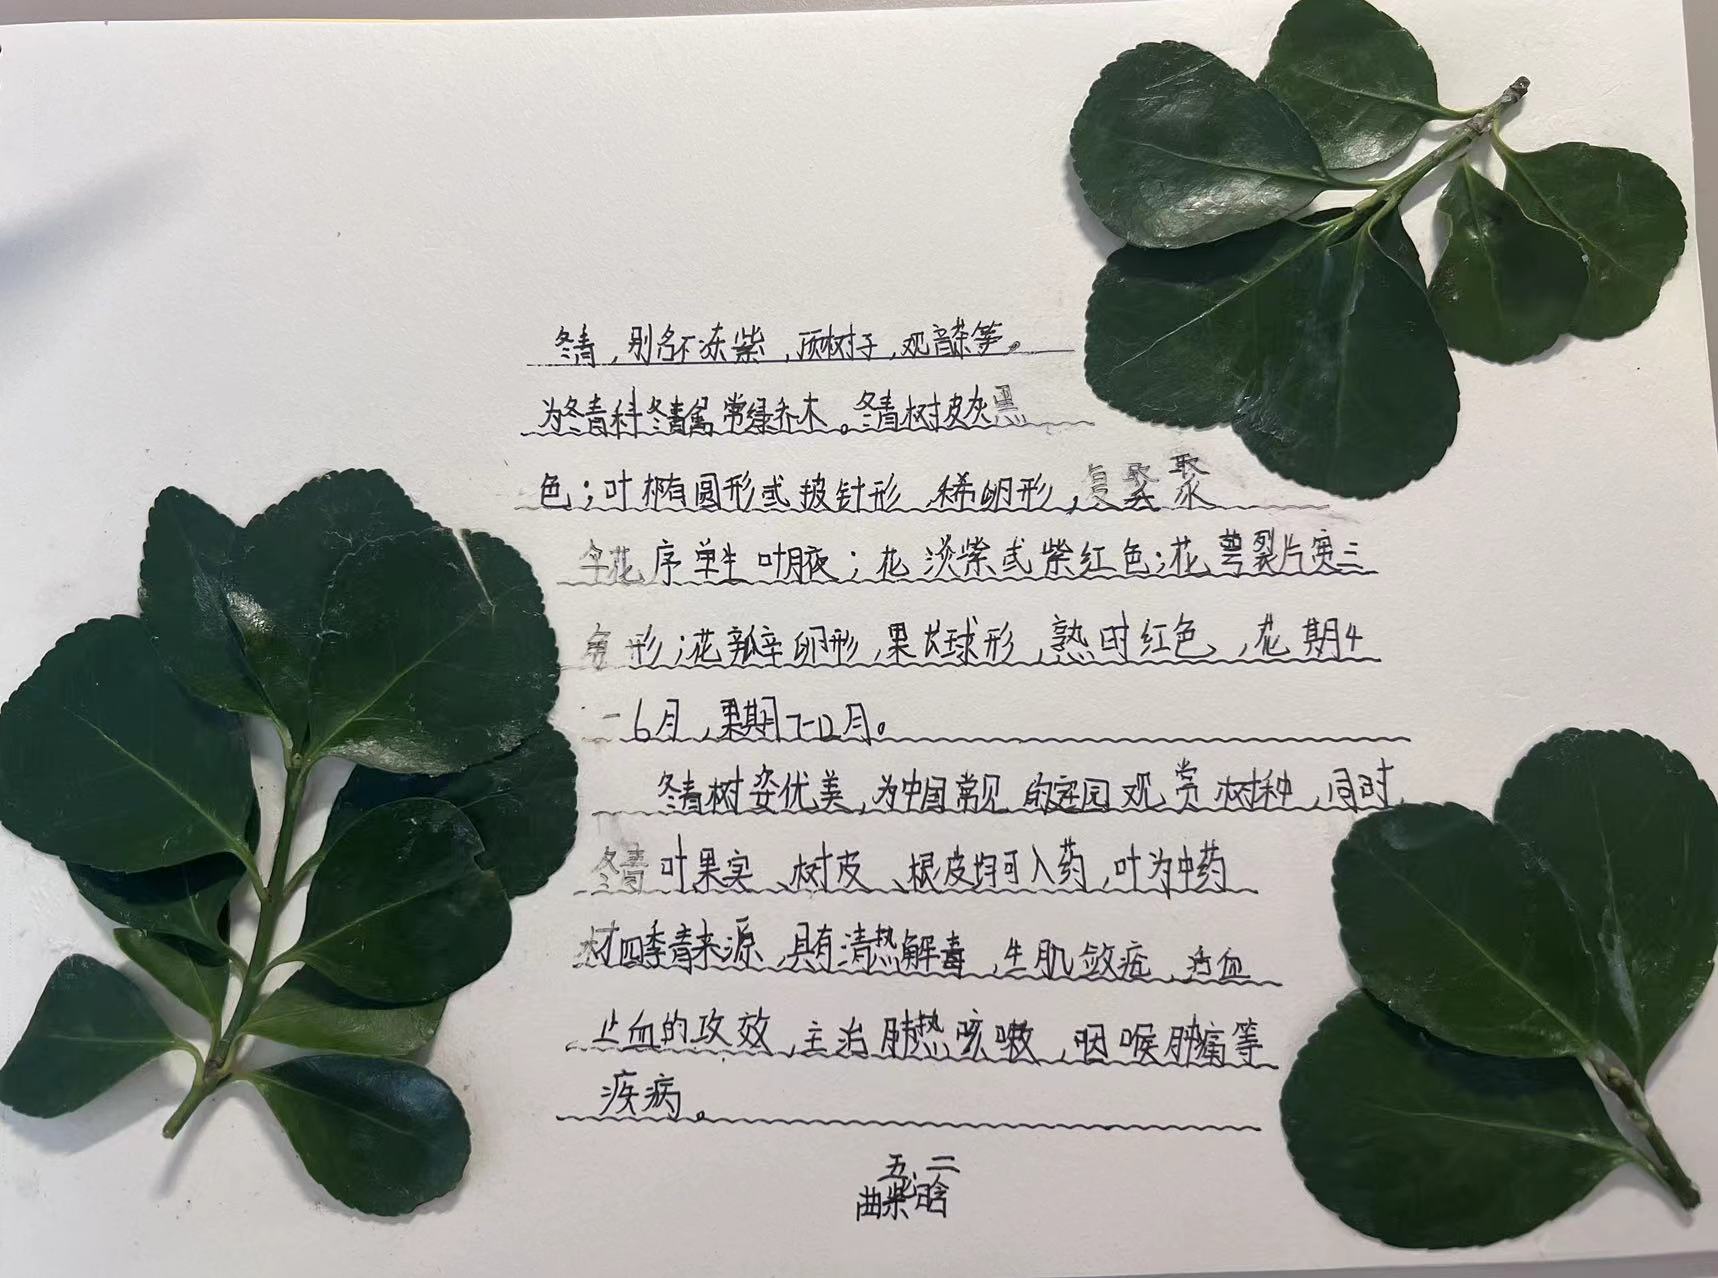 冬青，别名冻紫，顶树子，观音茶等。
为冬青科冬青属常绿乔木。冬青树皮灰黑
色；叶椭圆形或披针形，稀卵形，复聚
伞花序单生叶腋；花淡紫或紫红色；花萼裂片宽三
角形；花瓣卵形，果长球形，熟时红色，花期4
-6月，果期7-12月。
冬青树姿优美，为中国常见的庭园观赏树种，同时，
冬青叶果实、树皮、根皮均可入药，叶为中药
材四季青来源，具有清热解毒，生肌敛疮，活血
止血的攻效，主治肺热咳嗽，咽喉肿痛等
疾病。
五二
曲紫晗